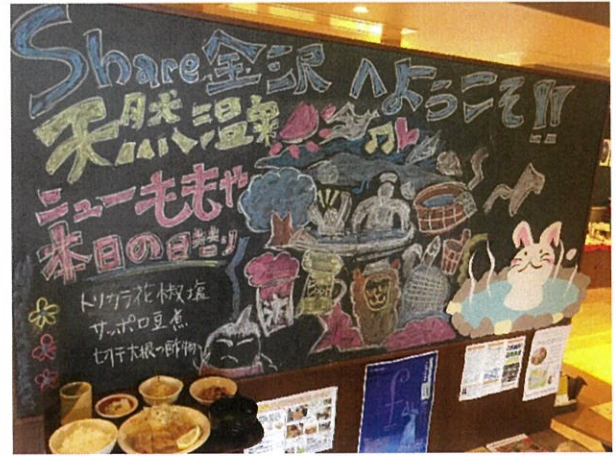 Share金沢へようこそ!!
天然温泉
ニューももや
本日の日替り
トリカラ花椒塩
サッポロ豆煮
セリテ大根の酢物
f